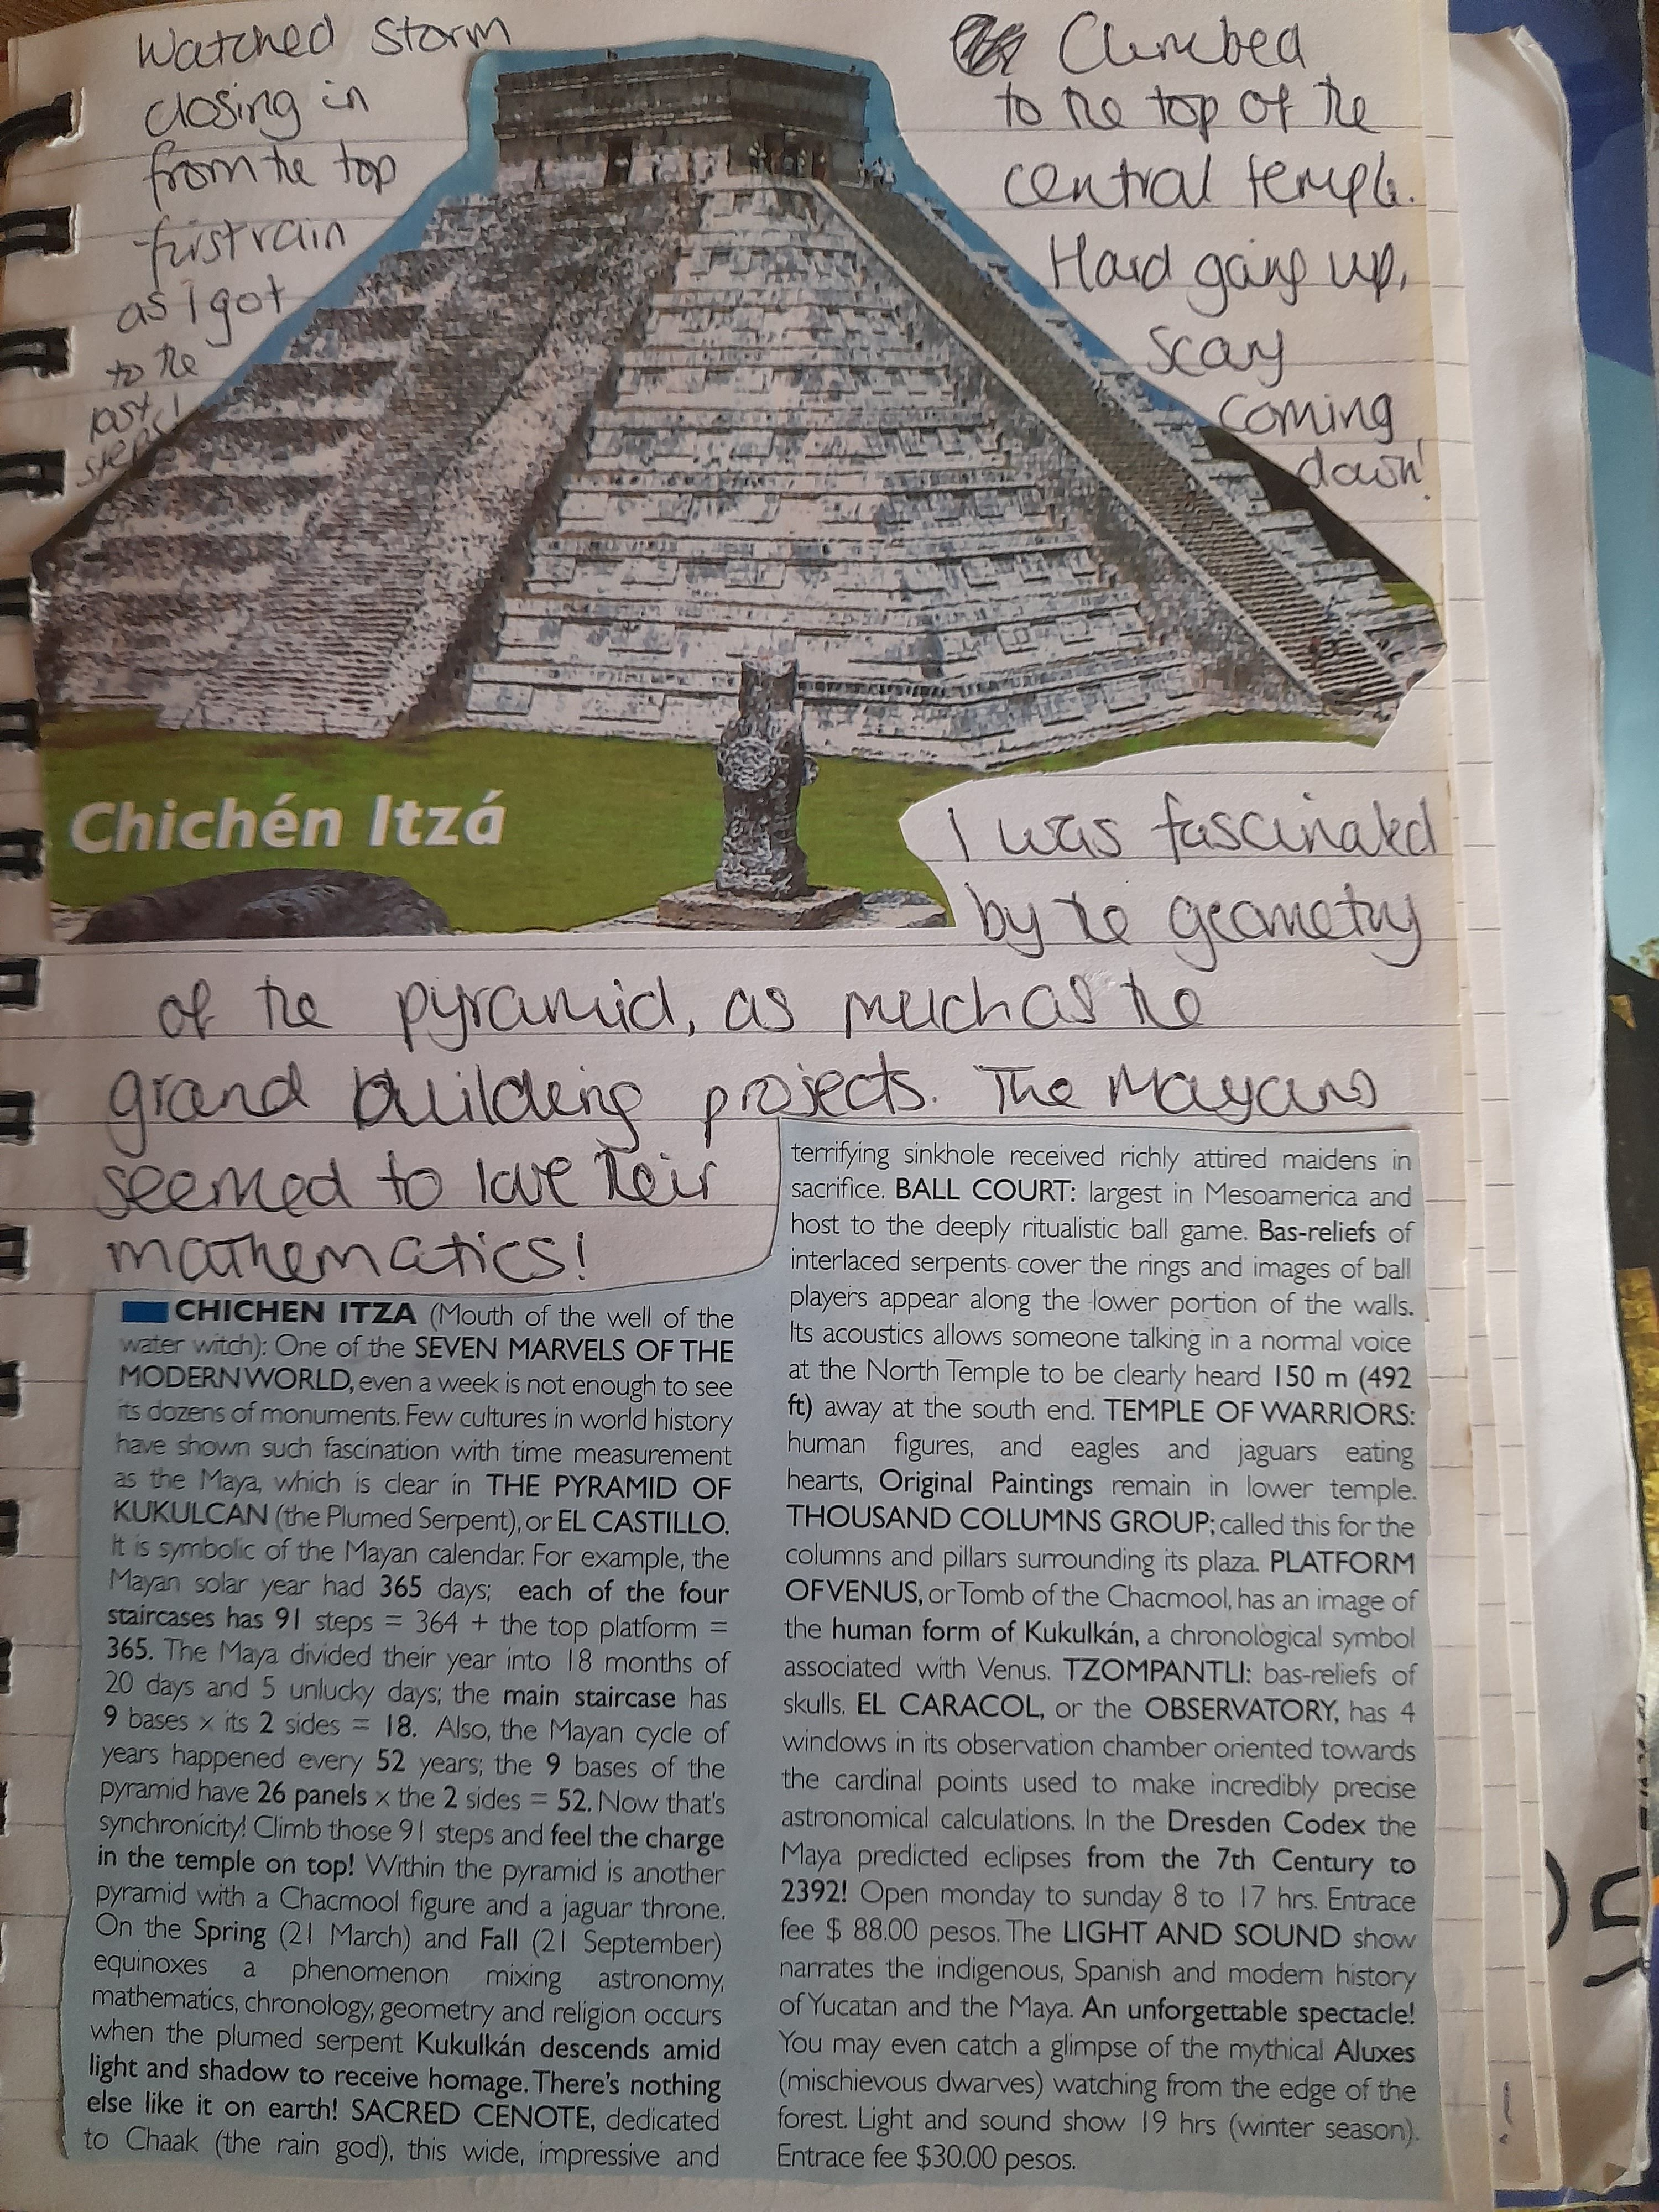 Watched storm
closing in
from the top
first rain
as I got
to the
last
step!
Climbed
to the top of the
central temple.
Hard going up,
scary
coming
down!
Chichén Itzá
I was fascinated
by the geometry
of the pyramid, as much as the
grand building projects. The Mayans
seemed to love their
mathematics!
CHICHEN ITZA (Mouth of the well of the
water witch): One of the SEVEN MARVELS OF THE
MODERN WORLD, even a week is not enough to see
its dozens of monuments. Few cultures in world history
have shown such fascination with time measurement
as the Maya, which is clear in THE PYRAMID OF
KUKULCAN (the Plumed Serpent), or EL CASTILLO.
It is symbolic of the Mayan calendar. For example, the
Mayan solar year had 365 days; each of the four
staircases has 91 steps = 364 + the top platform =
365. The Maya divided their year into 18 months of
20 days and 5 unlucky days; the main staircase has
9 bases x its 2 sides = 18. Also, the Mayan cycle of
years happened every 52 years; the 9 bases of the
pyramid have 26 panels x the 2 sides = 52. Now that's
synchronicity! Climb those 91 steps and feel the charge
in the temple on top! Within the pyramid is another
pyramid with a Chacmool figure and a jaguar throne.
On the Spring (21 March) and Fall (21 September)
equinoxes a phenomenon mixing astronomy,
mathematics, chronology, geometry and religion occurs
when the plumed serpent Kukulkán descends amid
light and shadow to receive homage. There's nothing
else like it on earth! SACRED CENOTE, dedicated
to Chaak (the rain god), this wide, impressive and
terrifying sinkhole received richly attired maidens in
sacrifice. BALL COURT: largest in Mesoamerica and
host to the deeply ritualistic ball game. Bas-reliefs of
interlaced serpents cover the rings and images of ball
players appear along the lower portion of the walls.
Its acoustics allows someone talking in a normal voice
at the North Temple to be clearly heard 150 m (492
ft) away at the south end. TEMPLE OF WARRIORS:
human figures, and eagles and jaguars eating
hearts, Original Paintings remain in lower temple.
THOUSAND COLUMNS GROUP; called this for the
columns and pillars surrounding its plaza. PLATFORM
OF VENUS, or Tomb of the Chacmool, has an image of
the human form of Kukulkán, a chronological symbol
associated with Venus. TZOMPANTLI: bas-reliefs of
skulls. EL CARACOL, or the OBSERVATORY, has 4
windows in its observation chamber oriented towards
the cardinal points used to make incredibly precise
astronomical calculations. In the Dresden Codex the
Maya predicted eclipses from the 7th Century to
2392! Open monday to sunday 8 to 17 hrs. Entrace
fee $ 88.00 pesos. The LIGHT AND SOUND show
narrates the indigenous, Spanish and modern history
of Yucatan and the Maya. An unforgettable spectacle!
You may even catch a glimpse of the mythical Aluxes
(mischievous dwarves) watching from the edge of the
forest. Light and sound show 19 hrs (winter season).
Entrace fee $30.00 pesos.